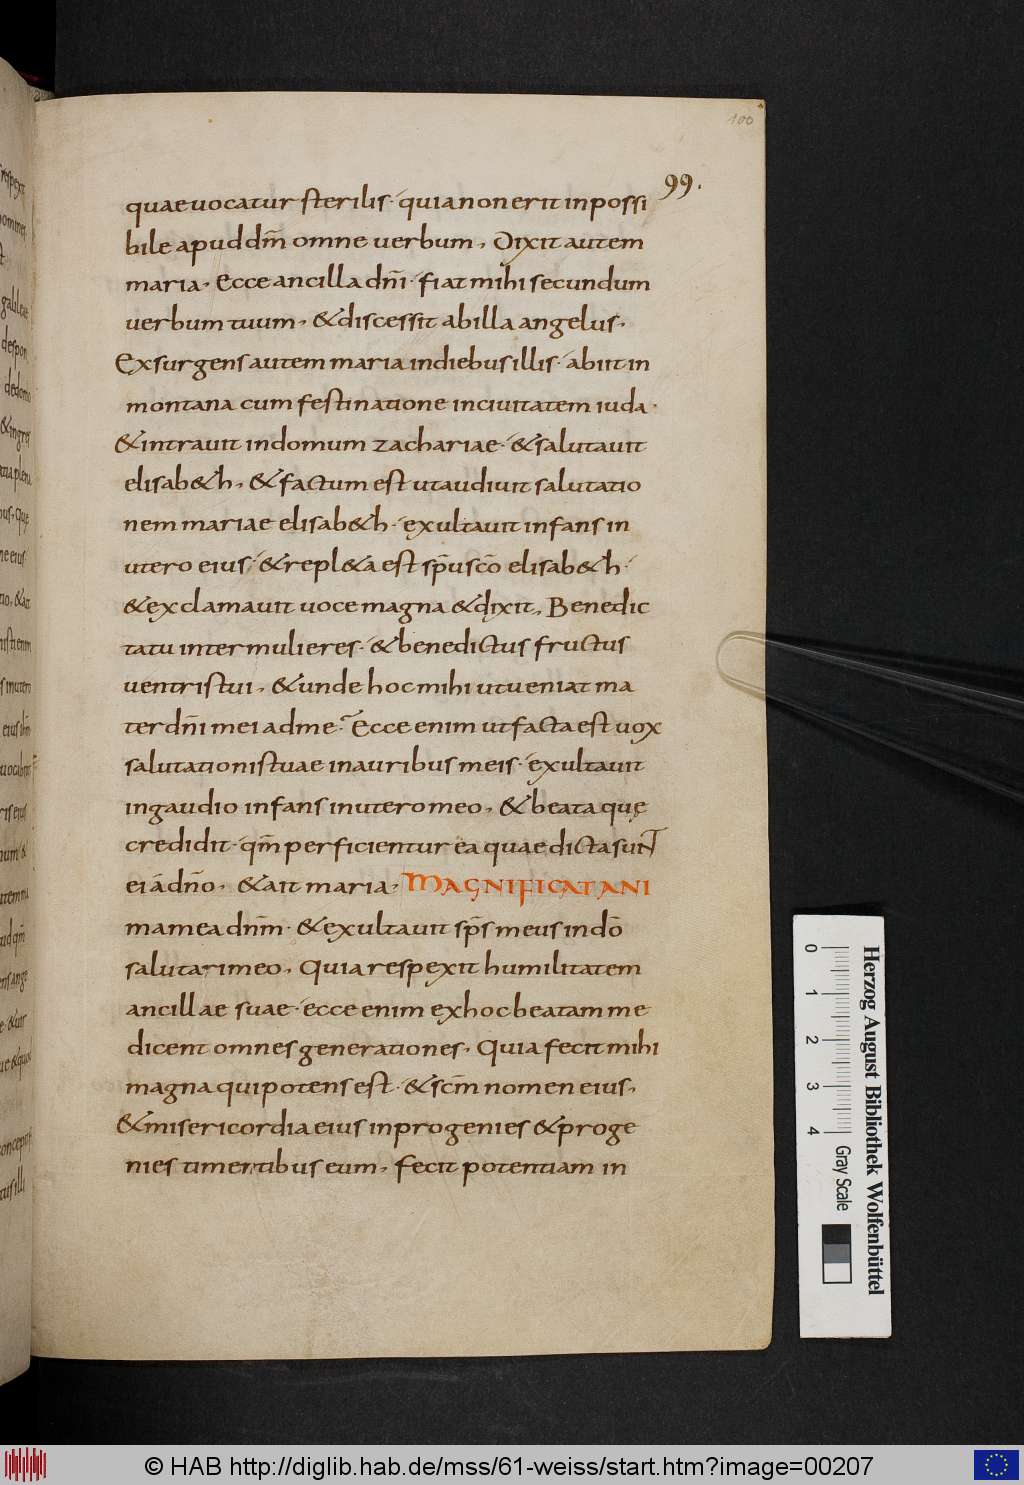 100
99.
quae uocatur sterilis· quia non erit inpossi
bile apud dn̄m omne uerbum, Dixit autem
maria· Ecce ancilla dn̄i· fiat mihi secundum
uerbum tuum, & discessit ab illa angelus,
Exsurgens autem maria in diebus illis· abiit in
montana cum festinatione in ciuitatem iuda·
& intrauit in domum zachariae· & salutauit
elisab&h, & factum est ut audiuit salutatio
nem mariae elisab&h· exultauit infans in
utero eius· & repl&a est sp̄u sc̄o elisab&h·
& exclamauit uoce magna & dixit, Benedic
ta tu inter mulieres· & benedictus fructus
uentris tui, & unde hoc mihi ut ueniat ma
ter dn̄i mei ad me· Ecce enim ut facta est uox
salutationis tuae in auribus meis· exultauit
in gaudio infans in utero meo, & beata quę
credidit· qm̄ perficientur ea quae dicta sunt
ei a dn̄o, & ait maria, MAGNIFICAT ANI
ma mea dn̄m· & exultauit sp̄s meus in dō
salutari meo, Quia respexit humilitatem
ancillae suae· ecce enim ex hoc beatam me
dicent omnes generationes, Quia fecit mihi
magna qui potens est· & sc̄m nomen eius,
& misericordia eius in progenies & proge
nies timentibus eum, fecit potentiam in
Herzog August Bibliothek Wolfenbüttel
0 1 2 3 4 Gray Scale
© HAB http://diglib.hab.de/mss/61-weiss/start.htm?image=00207